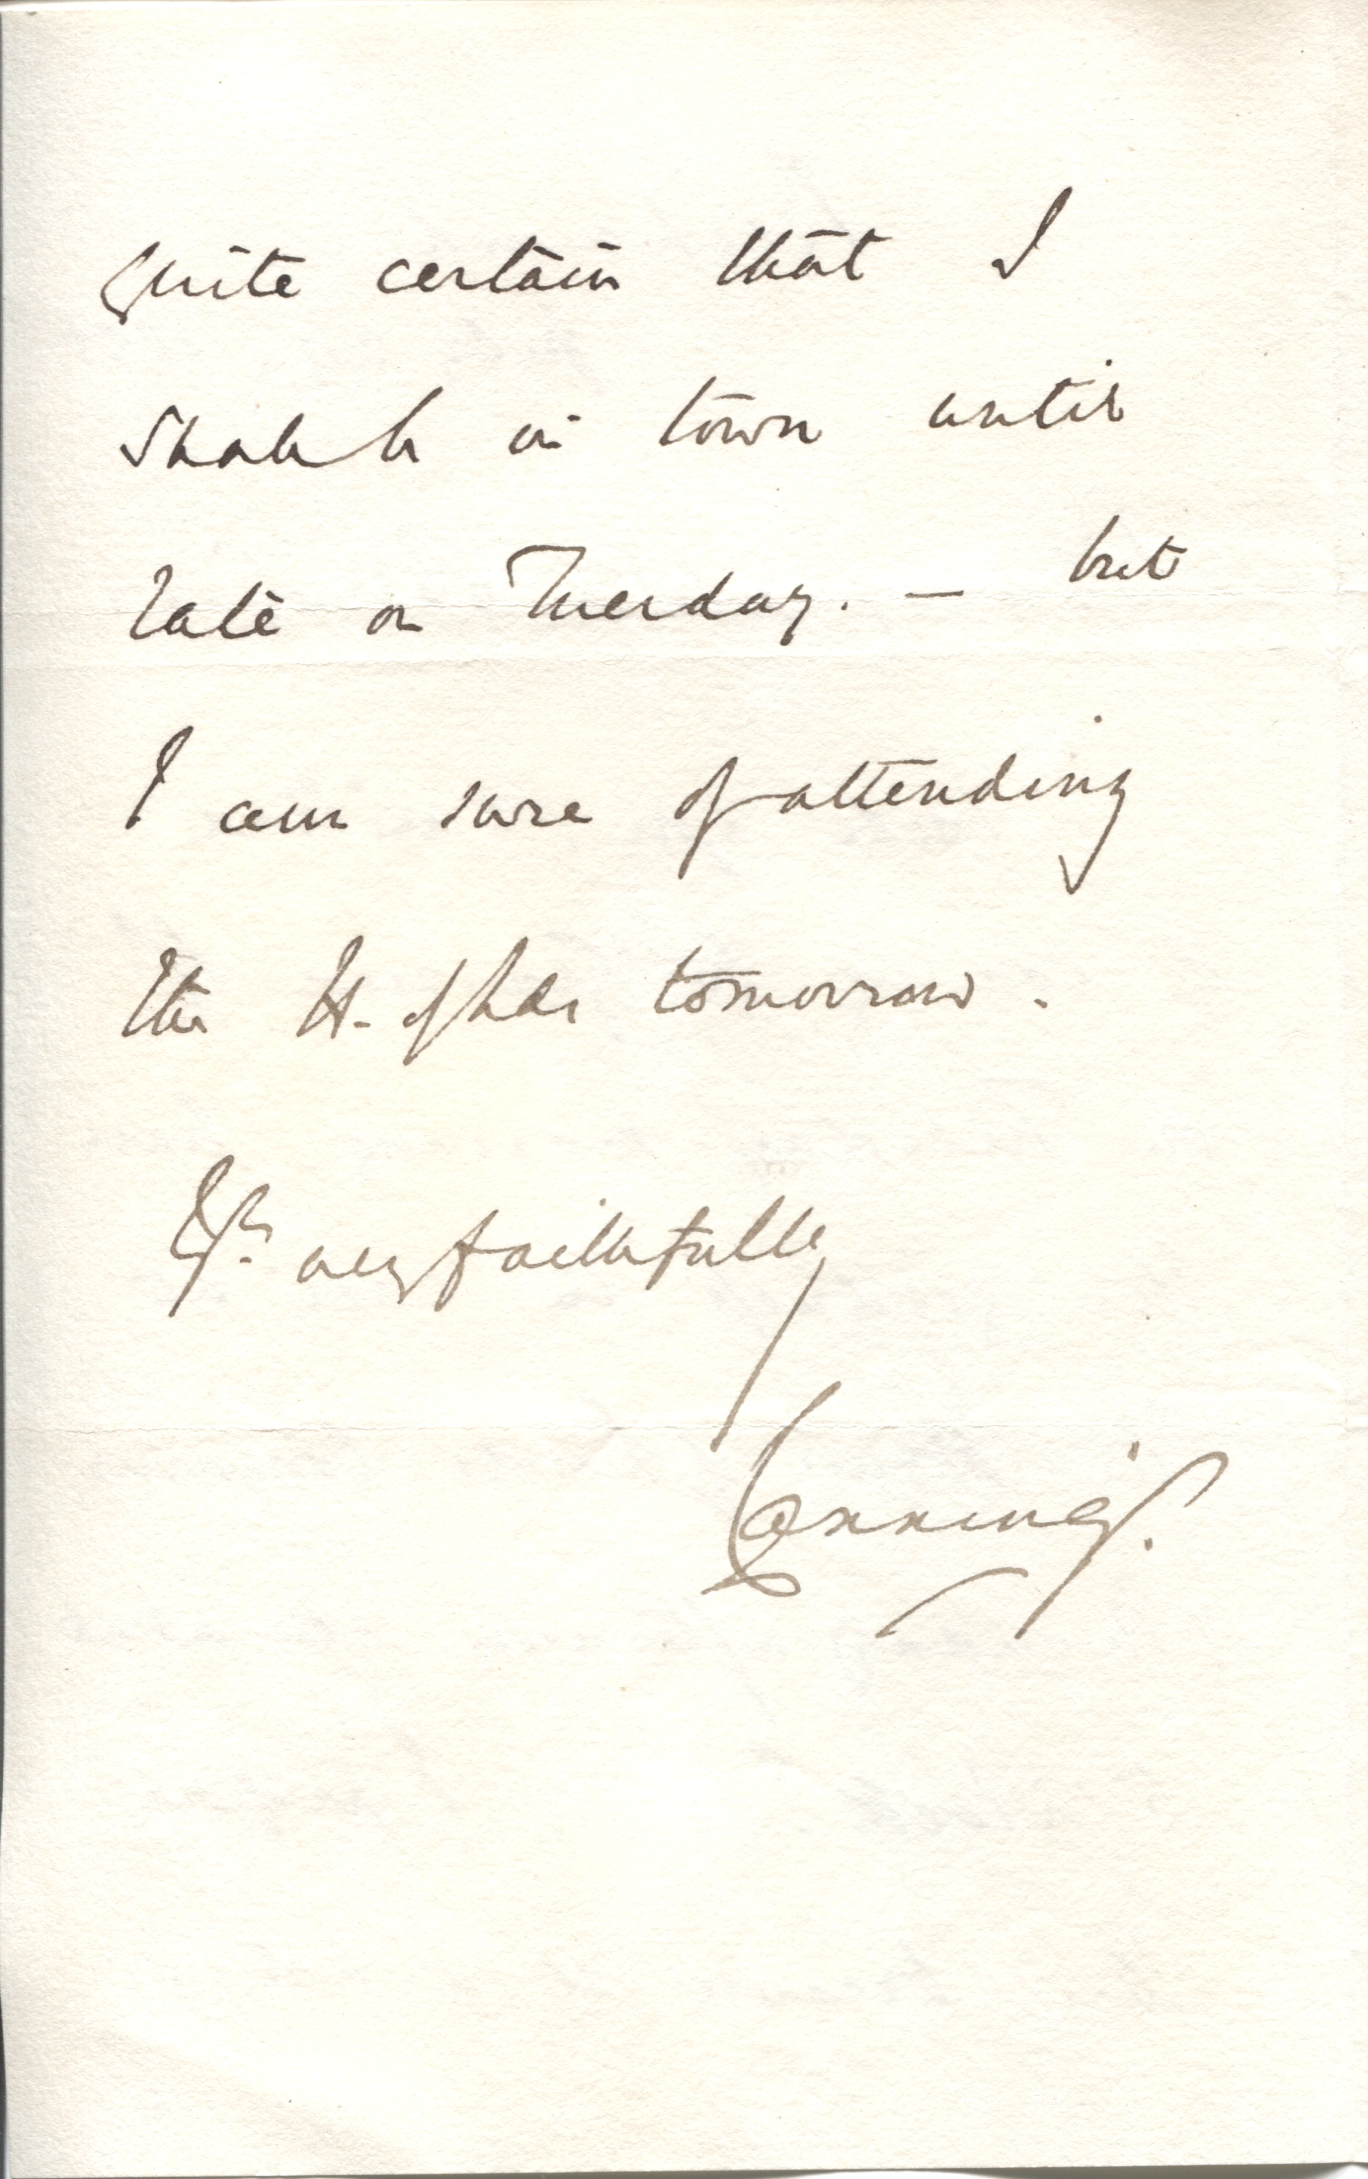 quite certain that I
shall be in town until
late on Tuesday. — but
I am sure of attending
the H. of Lds tomorrow.
Yrs. very faithfully
Canning.